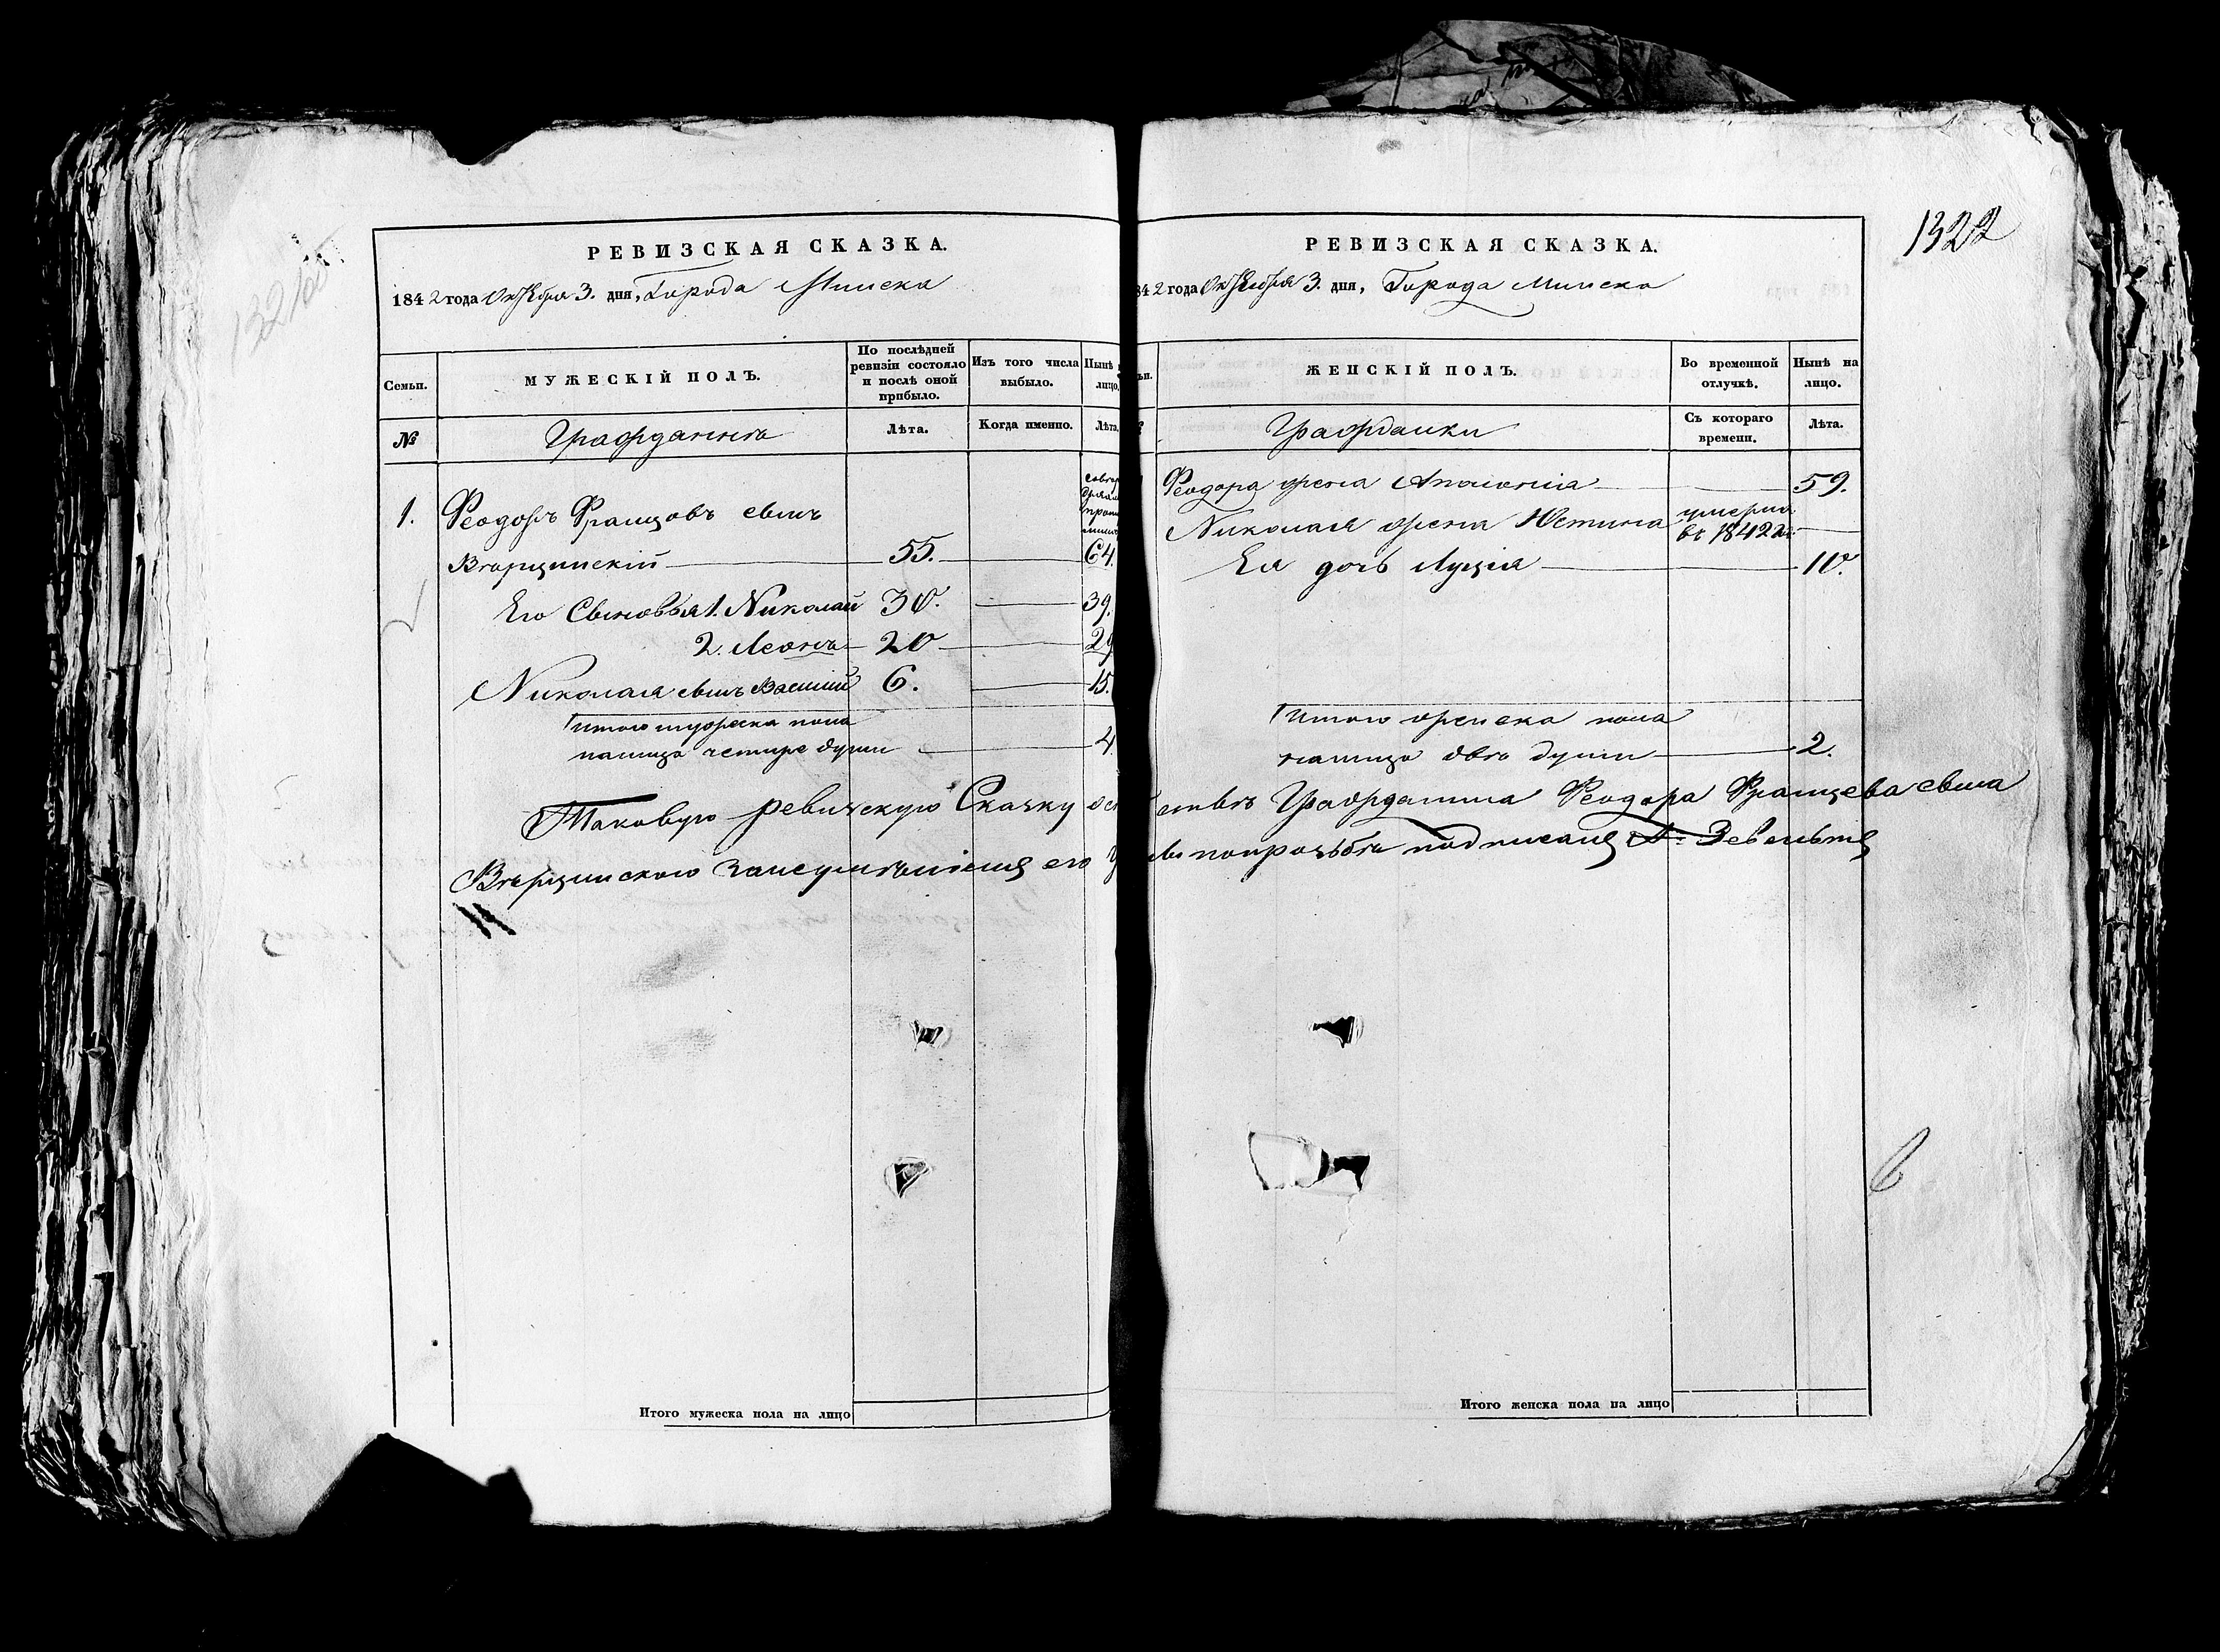 РЕВИЗСКАЯ СКАЗКА.
1842 года Октября 3. дня, Города Минска
Семьи.
МУЖЕСКІЙ ПОЛЪ.
По послѣдней ревизіи состояло и послѣ оной прибыло.
Изъ того числа выбыло.
Нынѣ
лицо.
№
Гражданинъ
Лѣта.
Когда именно.
Лѣта.
1. Феодоръ Францовъ сынъ
Вѣрцинскій 55. 64.
Его Сыновья 1. Николай 30. 39.
2. Леонъ 20 29
Николая сынъ Василій 6. 15.
Итого мужеска пола
налицо четире души 4.
Таковую ревизскую Сказку
Вѣрцинского занеумѣніемъ его
Итого мужеска пола на лицо
1322
РЕВИЗСКАЯ СКАЗКА.
42 года Октября 3. дня, Города Минска
ЖЕНСКІЙ ПОЛЪ.
Во временной отлучкѣ.
Нынѣ на лицо.
Гражданки
Съ котораго времени.
Лѣта.
Феодора жена Аполонія 59.
Николая жена Юстина умерла
въ 1842
Ея дочь Луція 10.
Итого женска пола
налицо двѣ души 2.
Гражданина Феодора Францева сына
попрозьбѣ подписалъ
6
Итого женска пола на лицо